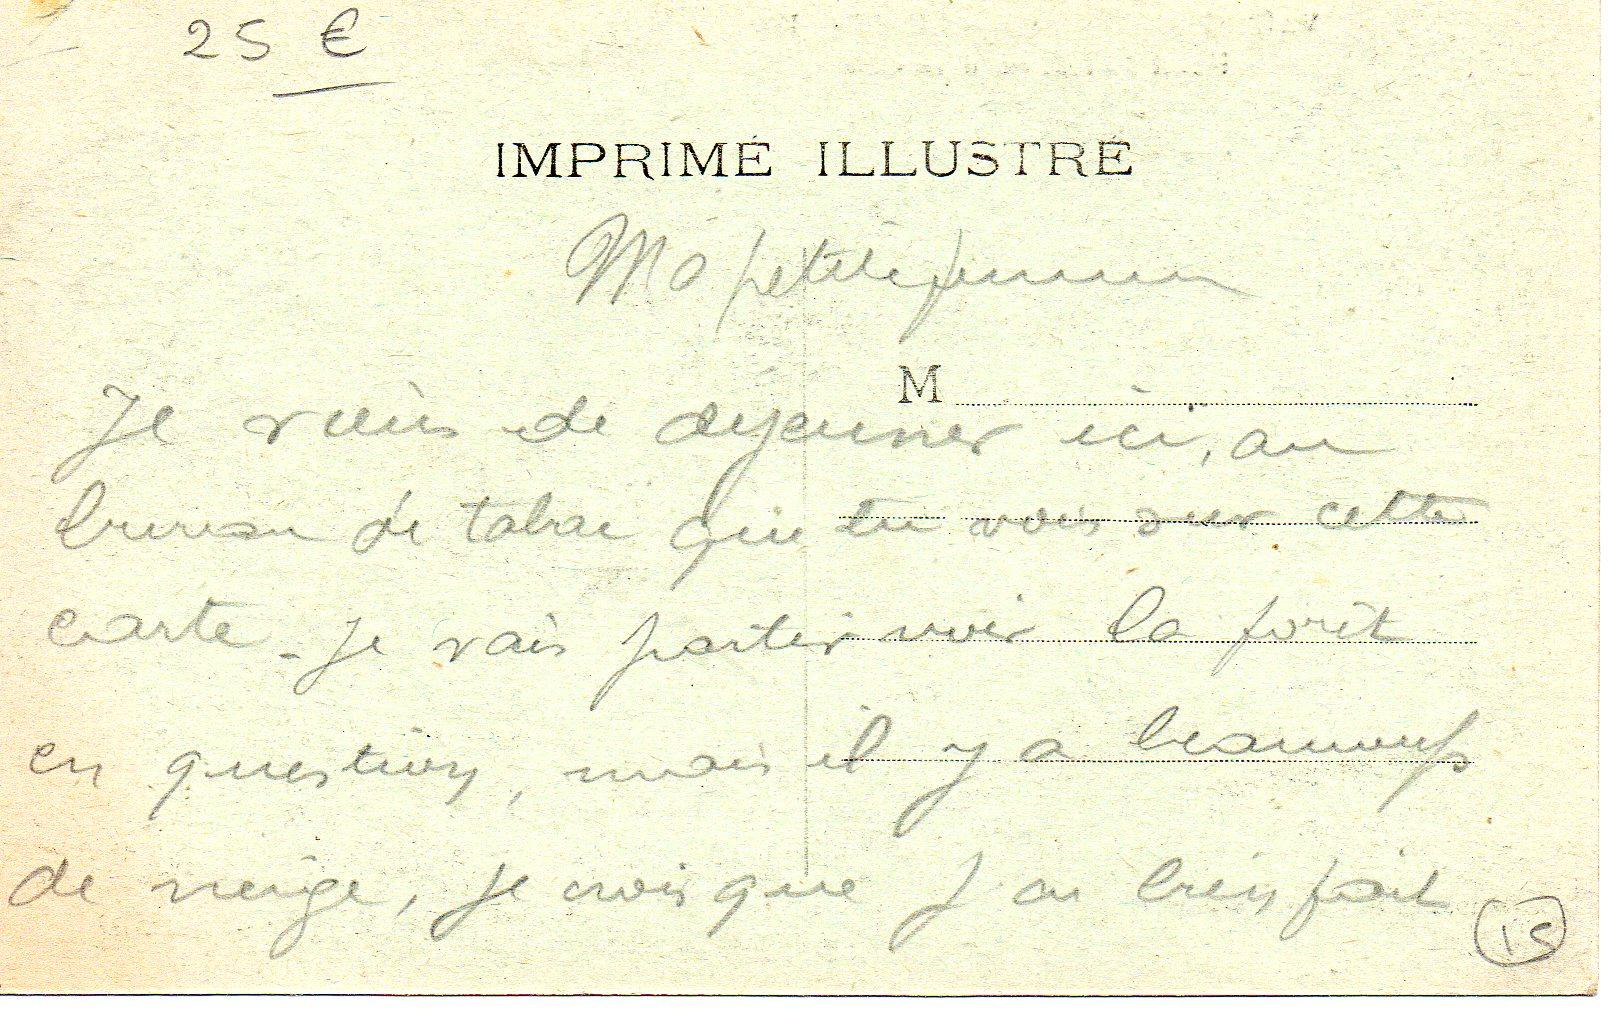 25 €
IMPRIMÉ ILLUSTRÉ
Ma petite femme
M
Je viens de dejeuner ici, au
bureau de tabac que tu vois sur cette
carte - je vais partir voir la forêt
en question, mais il y a beaucoup
de neige, je crois que j'ai bien fait
15